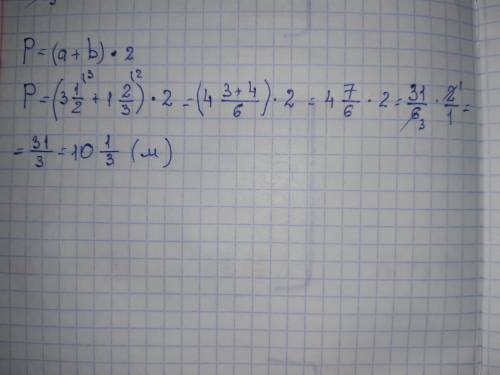 P=(a+b)·2
P=(3 1/2 \3 + 1 2/3 \2)·2=(4 3+4/6)·2=4 7/6·2=31/6 3·2 1/1=
=31/3=10 1/3 (м)